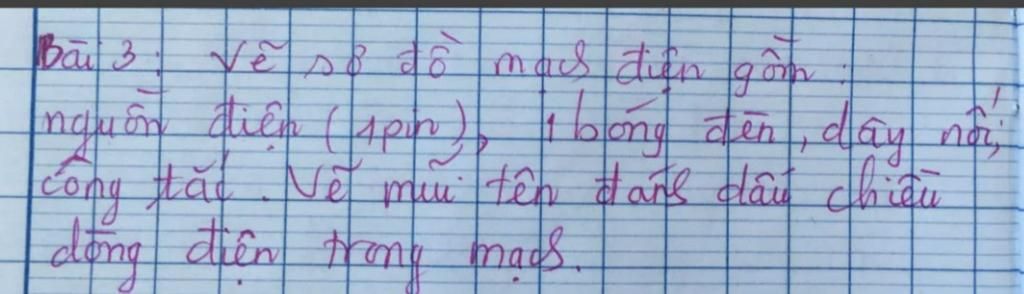 Bài 3: Vẽ sơ đồ mạch điện gồm:
nguồn điện (1 pin), 1 bóng đèn, dây nối,
công tắc. Vẽ mũi tên đánh dấu chiều
dòng điện trong mạch.